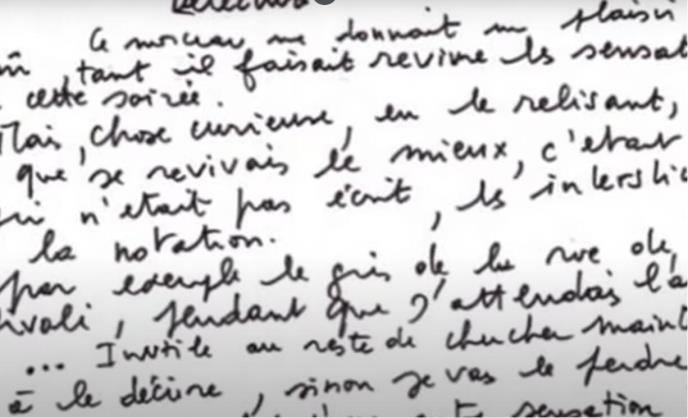 Ce morceau me donnait un plaisir
tant il faisait revivre ls sensat
cette soirée.
Mais, chose curieuse, en le relisant,
que je revivais le mieux, c'etait
n'etait pas écrit, ls interstic
la notation.
par exemple le gris de la rue de
ivoli, pendant que j'attendais l'a
... Inutile au reste de chercher maint
à le décrire, sinon je vas le perdre
sensation